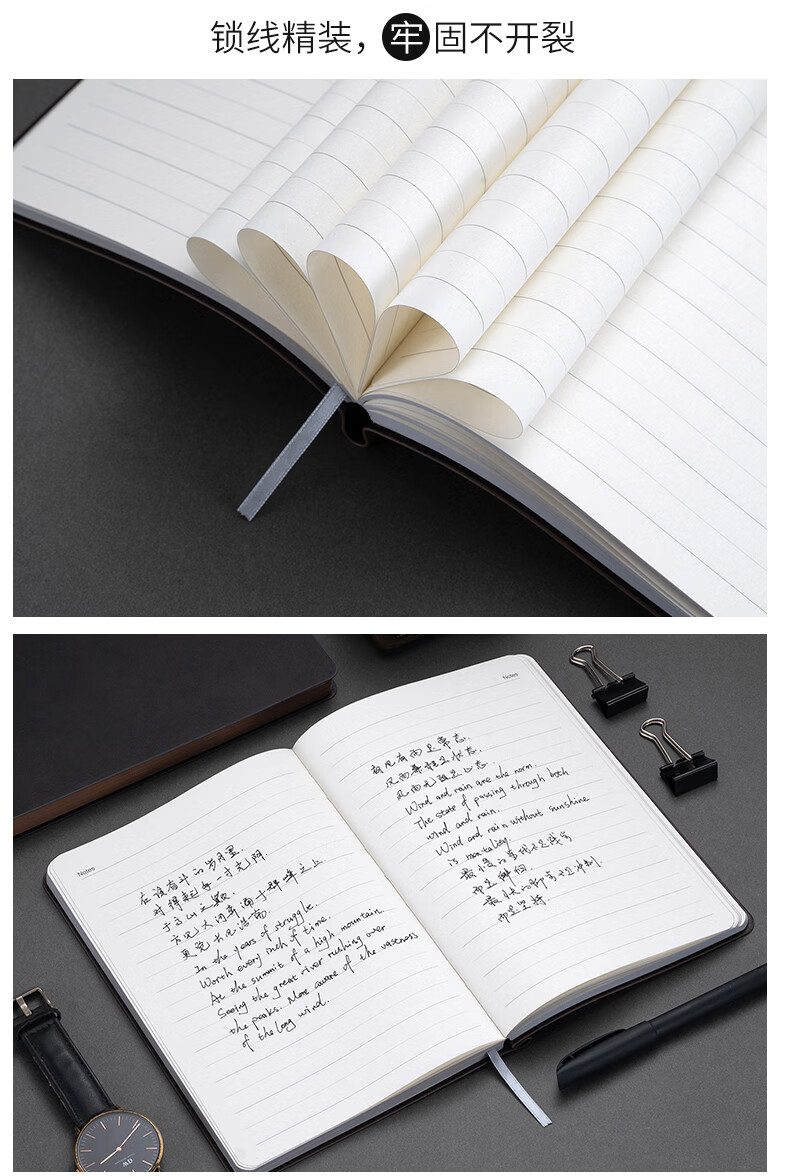 锁线精装，牢固不开裂
Notes
在
对得起每一寸光阴.
于高山之巅.
方见大河奔涌于群峰之上
更觉长风浩荡.
In the years of struggle.
Worth every inch of time.
At the summit of a high mountain.
Seeing the great river rushing over
the peaks. More aware of the vaseness
of the long wind.
Notes
有风有雨是常态.
风雨兼程是状态.
风雨无阻是心态.
Wind and rain are the norm.
The state of passing through both
wind and rain.
Wind and rain without sunshine
is mentality.
而是
而是坚持.
DW